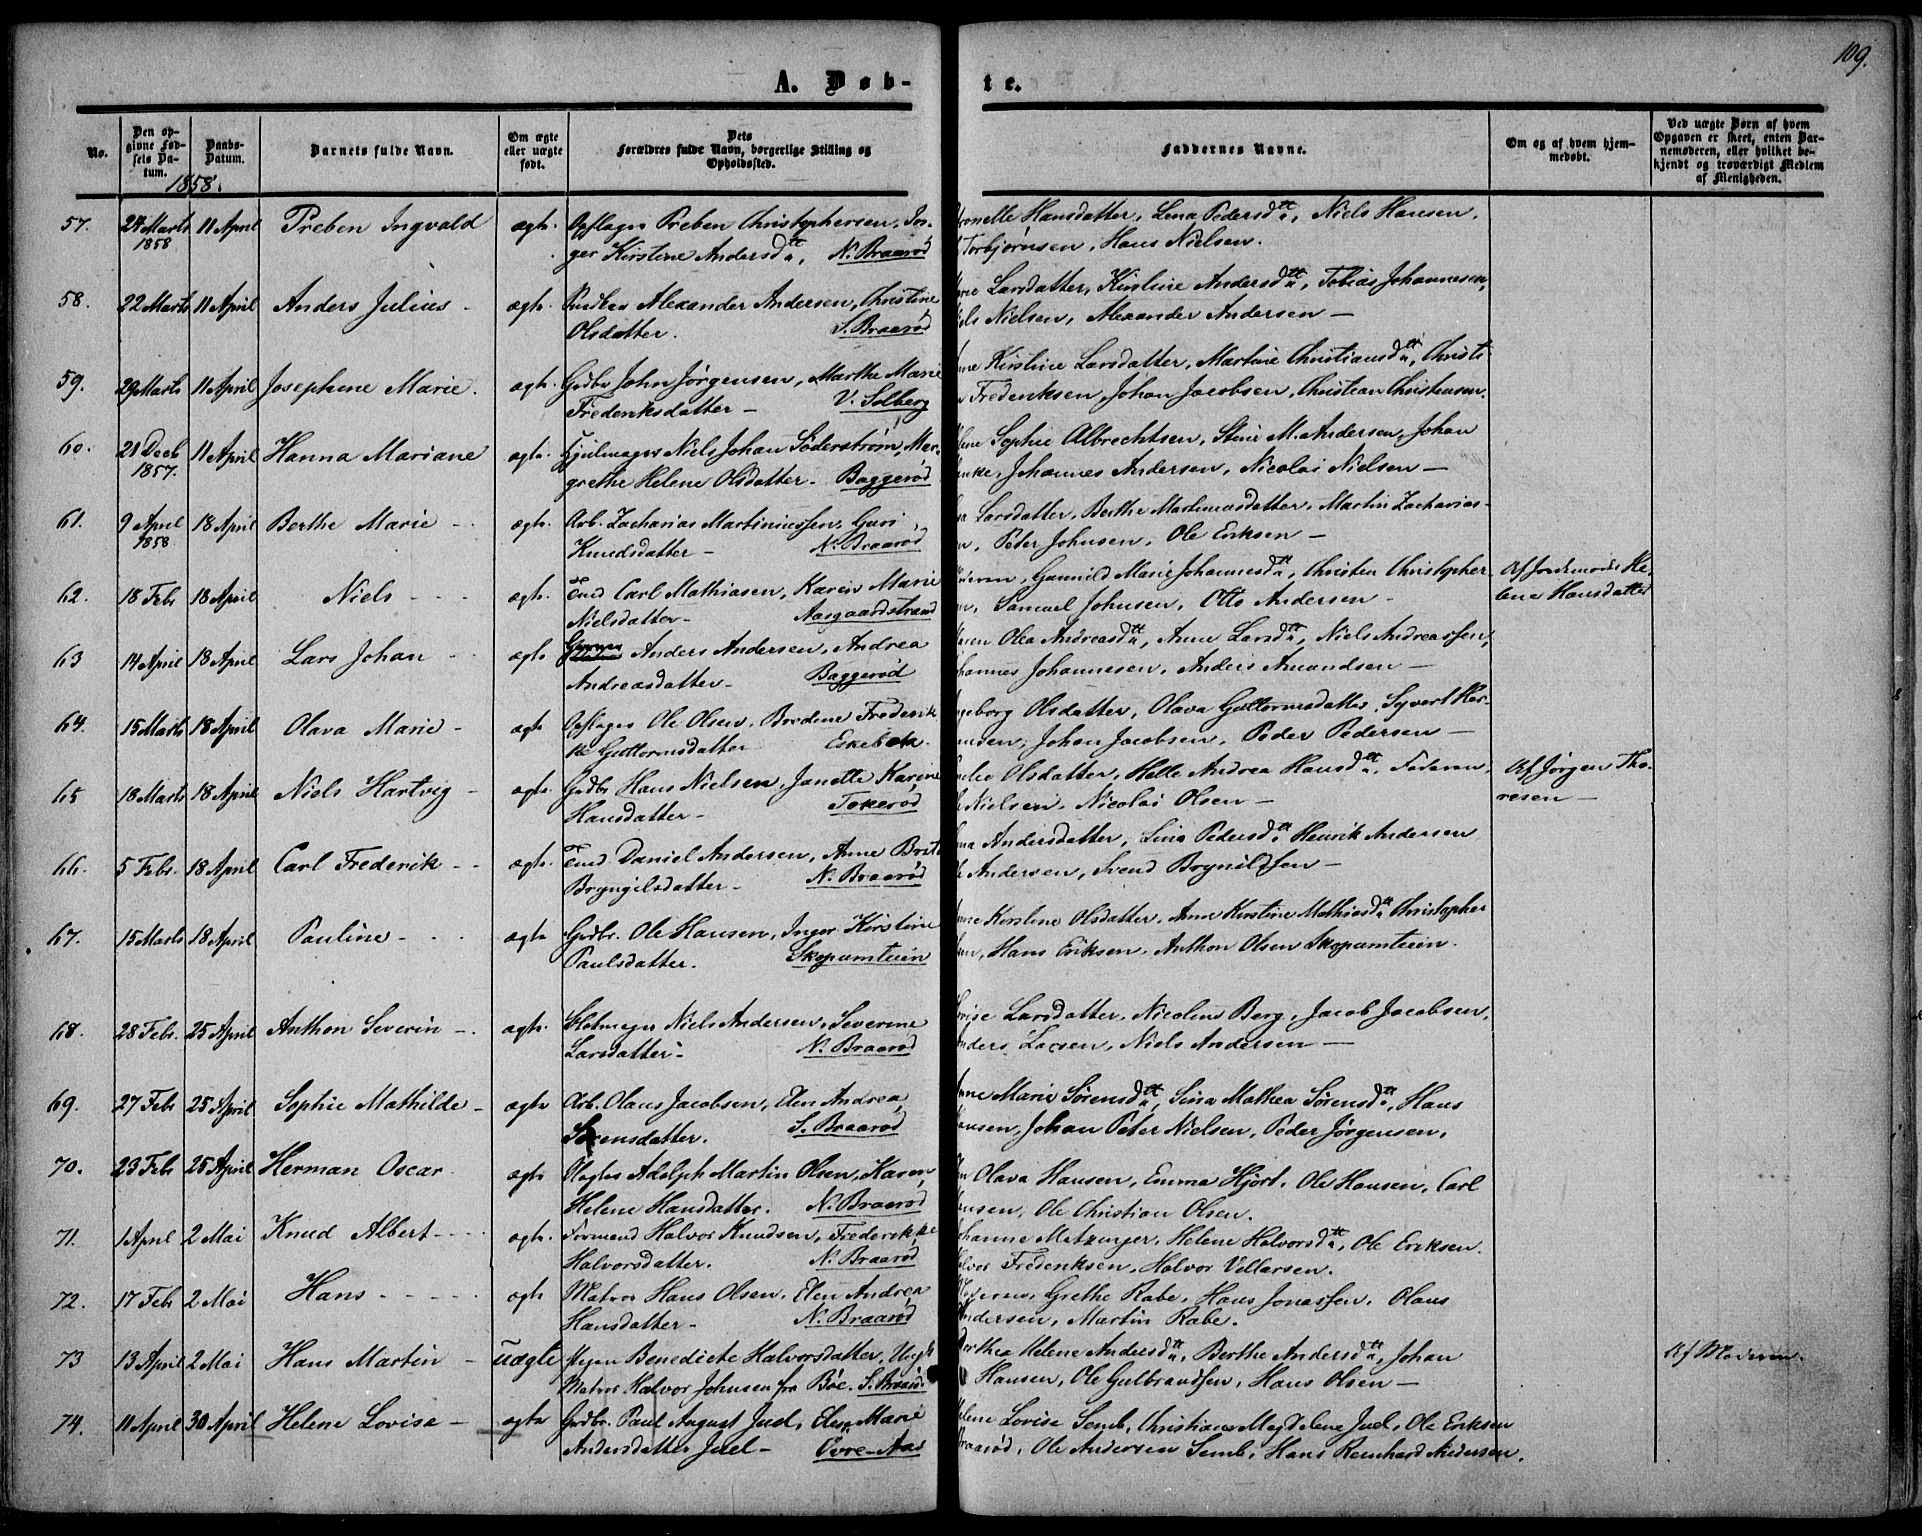 109.
A. Døb-
te.
No.
Den op-
givne Fød-
sels Da-
tum.
Daabs-
Datum.
Barnets fulde Navn.
Om ægte
eller uægte
født.
Dets
Forældres fulde Navn, borgerlige Stilling og
Opholdssted.
Faddernes Navne.
Om og af hvem hjem-
medøbt.
Ved uægte Børn af hvem
Opgaven er skeet, enten Bar-
nemoderen, eller hvilket be-
kjendt og troværdigt Medlem
af Menigheden.
1858.
57. 24 Marts 11 April Preben Ingvald ægte Preben Christophersen, In- Hansdatter, Lena Pedersdtr, Niels Hansen,
1858 ger Kirstine Andersdtr, N. Braarød Torbjørnsen, Hans Nielsen.
58. 22 Marts 11 April Anders Julius - ægte. Alexander Andersen, Christine Larsdatter, Kirstine Andersdtr, Tobias Johannesen,
Olsdatter. S. Braarød Nielsen, Alexander Andersen —
59. 29 Marts 11 April Josephine Marie. ægte. Grdbr John Jørgensen, Marthe Marie Kirstine Larsdatter, Martine Christiansdtr, Christi-
Frederiksdatter — V. Solberg Frederiksen, Johan Jacobsen, Christian Christensen.
60. 21 Decb 11 April Hanna Mariane ægte. Hjulmager Niels Johan Söderstrøm, Mar- Sophie Albrechtsen, Stine M. Andersen, Johan
1857. grethe Helene Olsdatter - Baggerød Johannes Andersen, Nicolai Nielsen —
61. 9 April 18 April Berthe Marie - - ægte. Arb. Zacharias Martiniussen, Guri Larsdatter, Berthe Martinusdatter, Martin Zacharias-
1858 Knudsdatter — N. Braarød Peter Johnsen, Ole Eriksen —
62. 18 Feb. 18 April Niels - - - ægte. Tmd Carl Mathiasen, Karen Marie Gunnild Marie Johannesdtr, Christen Christopher- Af Jordemoder He-
Nielsdatter - Aasgaardstrand Samuel Johnsen, Otto Andersen - lene Hansdatter
63 14 April 18 April Lars Johan - - ægte Anders Andersen, Andrea Karen Olea Andreasdtr, Anne Larsdtr, Niels Andreassen,
Andreasdatter - Baggerød Johannes Johannesen, Anders Amundsen —
64. 15 Marts 18 April Olava Marie - ægte. Ole Olsen, Bredine Frederik- Ingeborg Olsdatter, Olava Guttormsdatter, Syvert Her-
ke Guttormsdatter Eskebek. Johan Jacobsen, Peder Pedersen —
65 18 Marts 18 April Niels Hartvig - ægte. Grdbr Hans Nielsen, Janette Karine Olsdatter, Helle Andrea Hansdtr, Faderen, Af Jørgen Tho-
Hansdatter - Tokerød Nielsen, Nicolai Olsen — resen —
66. 5 Feb. 18 April Carl Frederik - - ægte. Tmd. Daniel Andersen, Anne Brit Andersdatter, Lina Pedersdtr Henrik Andersen
Bryngilsdatter - N. Braarød Andersen, Svend Brynildsen —
67. 15 Marts 18 April Pauline - - - ægte Grdbr. Ole Hansen, Inger Kirstine Anne Kirstine Olsdatter, Anne Kirstine Mathiasdtr Christopher
Paulsdatter. Skopumteien Hans Eriksen, Anthon Olsen Skopumteien.
68. 28 Feb. 25 April Anthon Severin - - ægte. Niels Andersen, Severine Larsdatter, Nicoline Berg, Jacob Jacobsen,
Larsdatter - N. Braarød Anders Larsen, Niels Andersen —
69. 27 Feb 25 April Sophie Mathilde - ægte Arb. Olaus Jacobsen, Elen Andrea Anne Marie Sørensdtr, Sina Mathea Sørensdtr, Hans
Sørensdatter. S. Braarød Johan Peter Nielsen, Peder Jørgensen,
70. 23 Feb 25 April Herman Oscar. ægte. Slagter Adolph Martin Olsen, Karen Olava Hansen, Emma Hjort, Ole Hansen, Carl
Helene Hansdatter. N. Braarød Ole Christian Olsen.
71. 1 April 2 Mai Knud Albert - - - ægte. Formand Halvor Knudsen, Frederikke Johanne Metzinger, Helene Halvorsdtr, Ole Eriksen.
Halvorsdatter. N. Braarød Frederiksen, Halvor Villarsen.
72. 17 Feb 2 Mai Hans - - - - - ægte Matros Hans Olsen, Elen Andrea Moderen, Grethe Rabe, Hans Jonassen, Olaus
Hansdatter - N. Braarød Andersen, Martin Rabe.
73 13 April 2 Mai Hans Martin - uægte Pigen Benedicte Halvorsdatter, Ungk. Dorthea Helene Andersdtr, Berthe Andersdtr, Johan Af Moderen.
Matros Halvor Johnsen fra Bøe. S. Braarød. Hansen, Ole Gulbrandsen, Hans Olsen —
74. 11 April 30 April Helene Lovise - ægte Grdbr. Paul August Juel, Elen Marie Helene Lovise Semb, Christiane Magdalene Juel, Ole Eriksen
Andersdatter Juel - Övre-Aas Braarød, Ole Andersen Semb, Hans Reinhard Andersen.